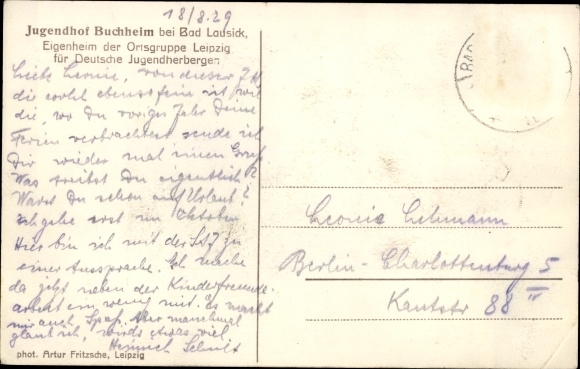 18/8.29
Jugendhof Buchheim bei Bad Lausick,
Eigenheim der Ortsgruppe Leipzig
für Deutsche Jugendherbergen
Liebe Leonie, von dieser J.H.
die wohl ebenso fein ist, wie
die, wo Du voriges Jahr Deine
Ferien verbrachtest sende ich
Dir wieder mal einen Gruß.
Was treibst Du eigentlich?
Warst Du schon auf Urlaub?
Ich gehe erst im Oktober
Hier bin ich mit der SAJ zu
einer Aussprache. Ich mache
da jetzt neben der Kinderfreunde-
arbeit ein wenig mit. Es macht
mir auch Spaß. Aber manchmal
glaub ich, wirds etwas viel
Heinrich
phot. Artur Fritzsche, Leipzig
BAD
Leonie Lehmann
Berlin-Charlottenburg 5
Kantstr 88 IV